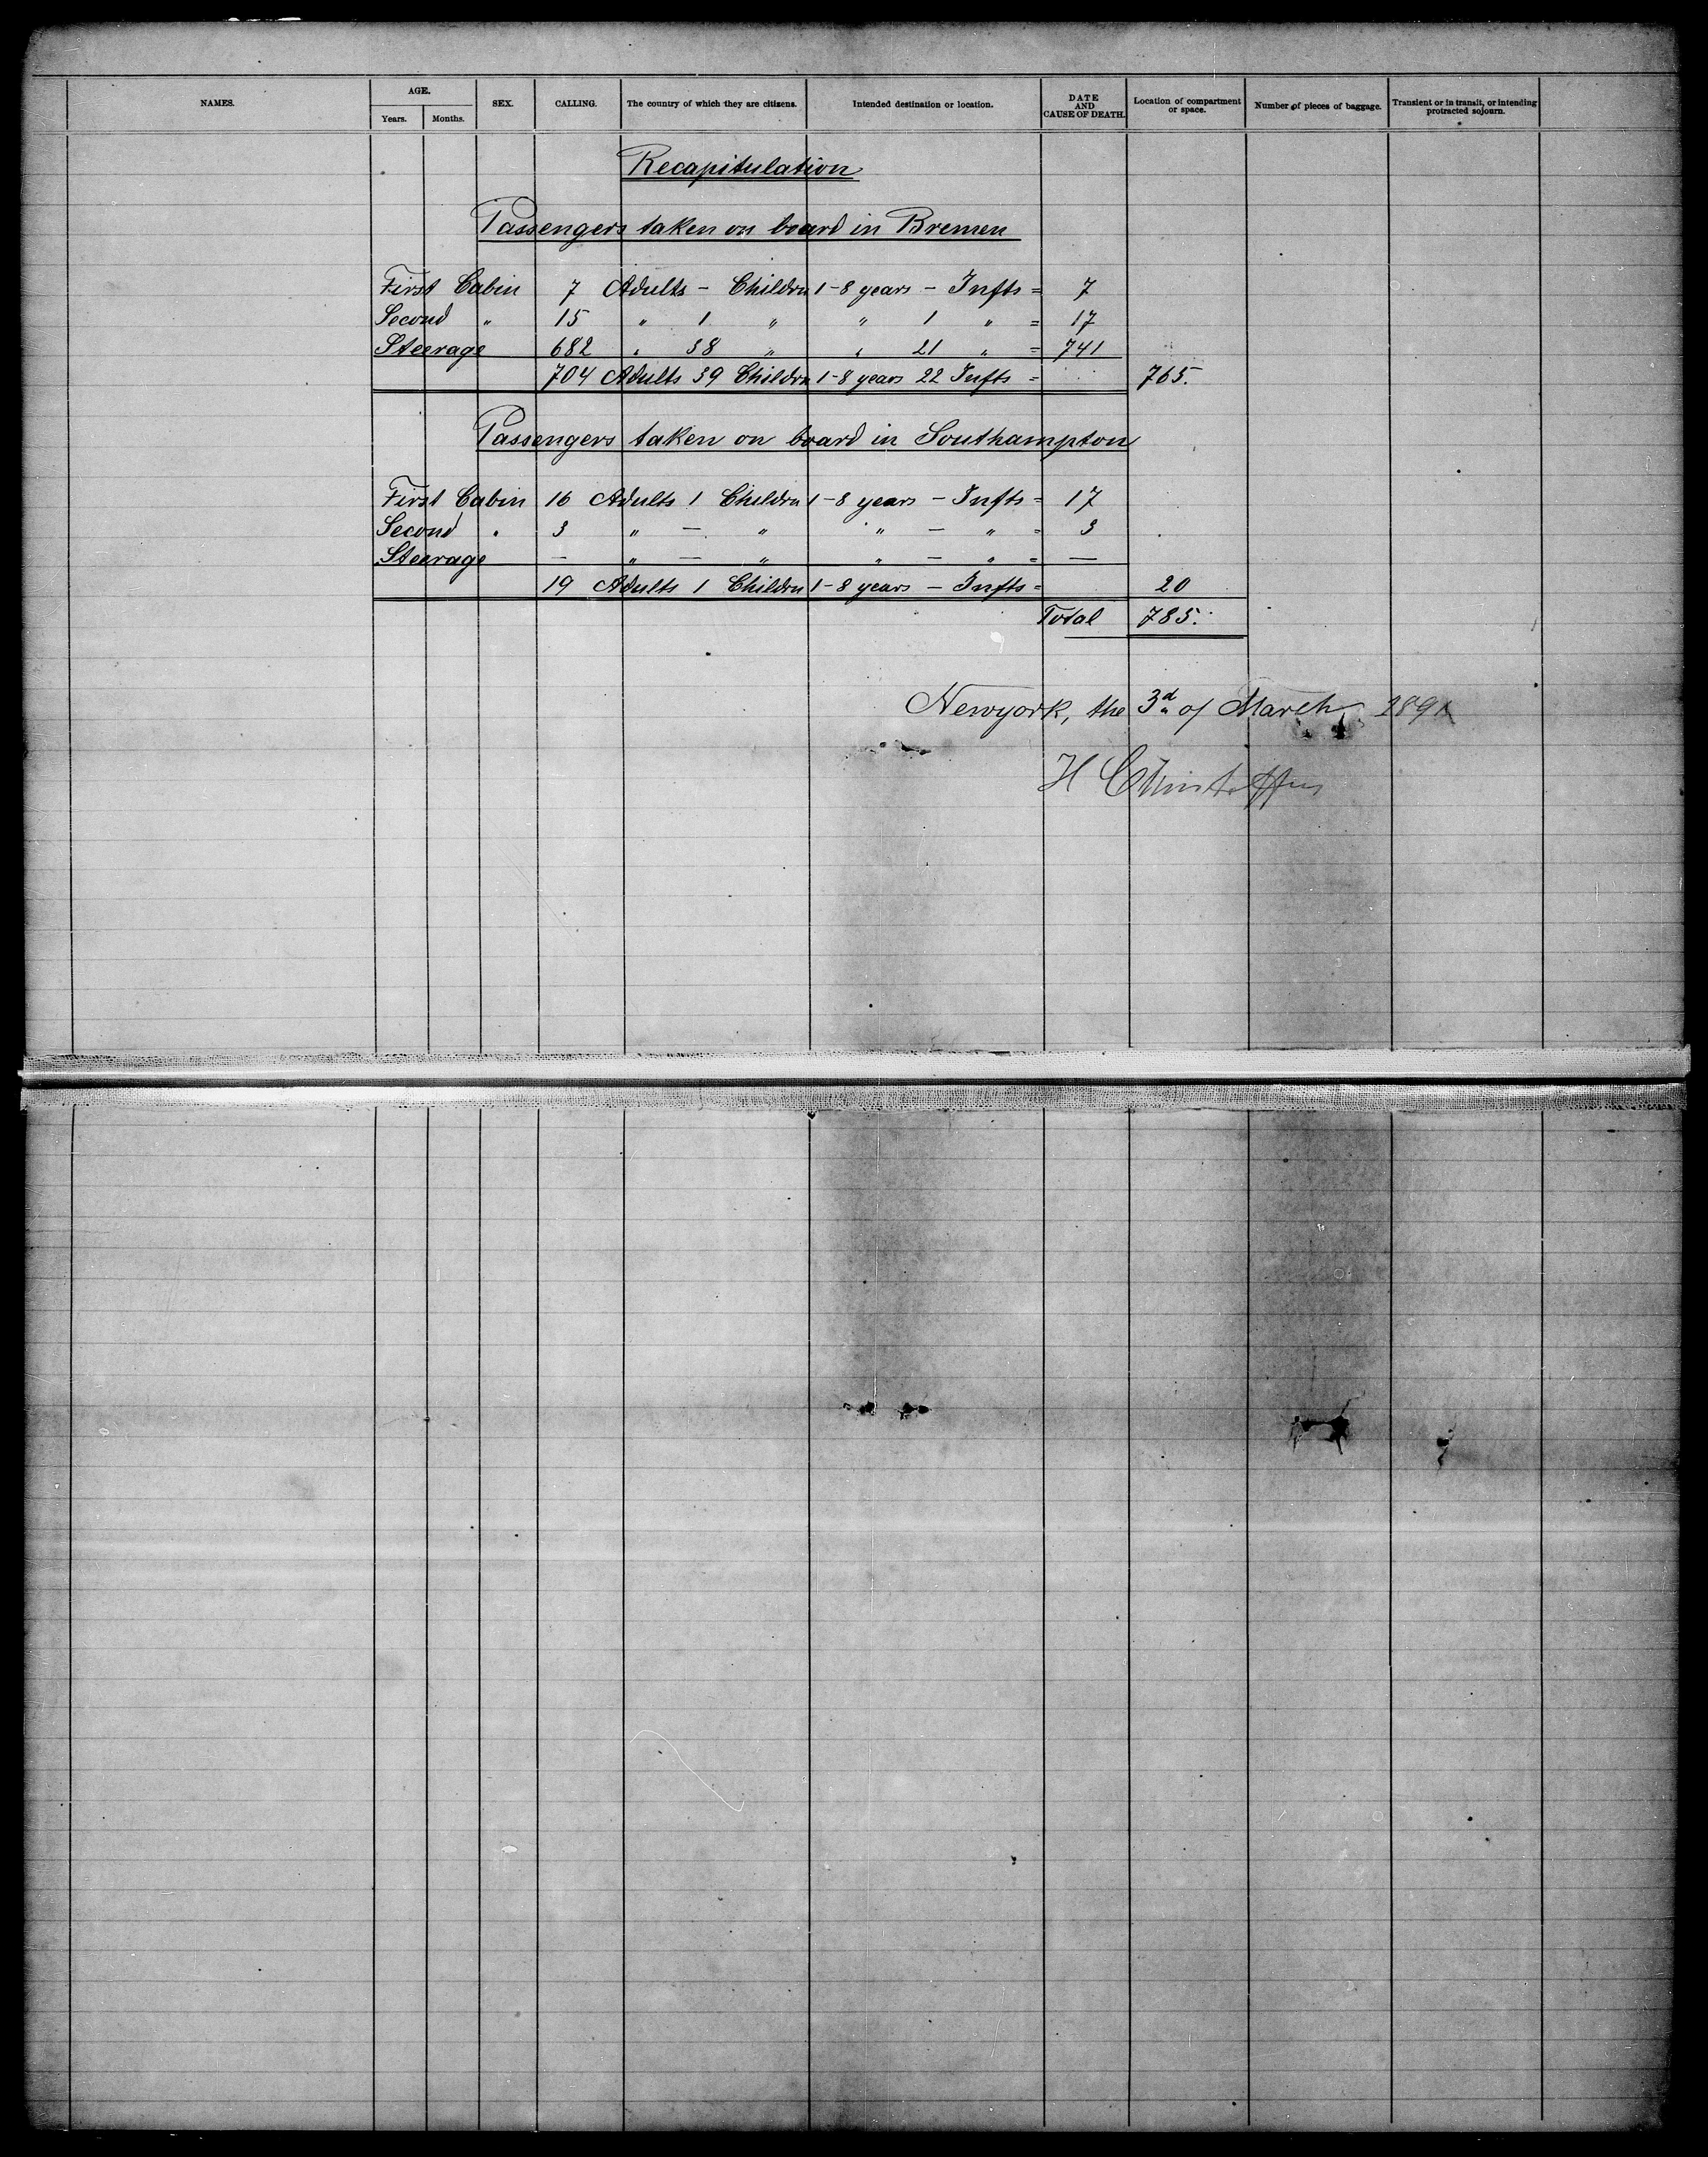 NAMES. AGE. SEX. CALLING. The country of which they are citizens. Intended destination or location. DATE AND CAUSE OF DEATH. Location of compartment or space. Number of pieces of baggage. Transient or in transit, or intending protracted sojourn.
Years. Months.
Recapitulation
Passengers taken on board in Bremen
First Cabin 7 Adults - Childrn 1-8 years - Infts = 7
Second " 15 " 1 " " 1 " = 17
Steerage 682 " 38 " " 21 " = 741
704 Adults 39 Childrn 1-8 years 22 Infts = 765.
Passengers taken on board in Southampton
First Cabin 16 Adults 1 Childrn 1-8 years - Infts = 17
Second " 3 " - " " - " = 3
Steerage - " - " " - " = -
19 Adults 1 Childrn 1-8 years - Infts = 20
Total 785.
Newyork, the 3d of March 1891
H Christoffers